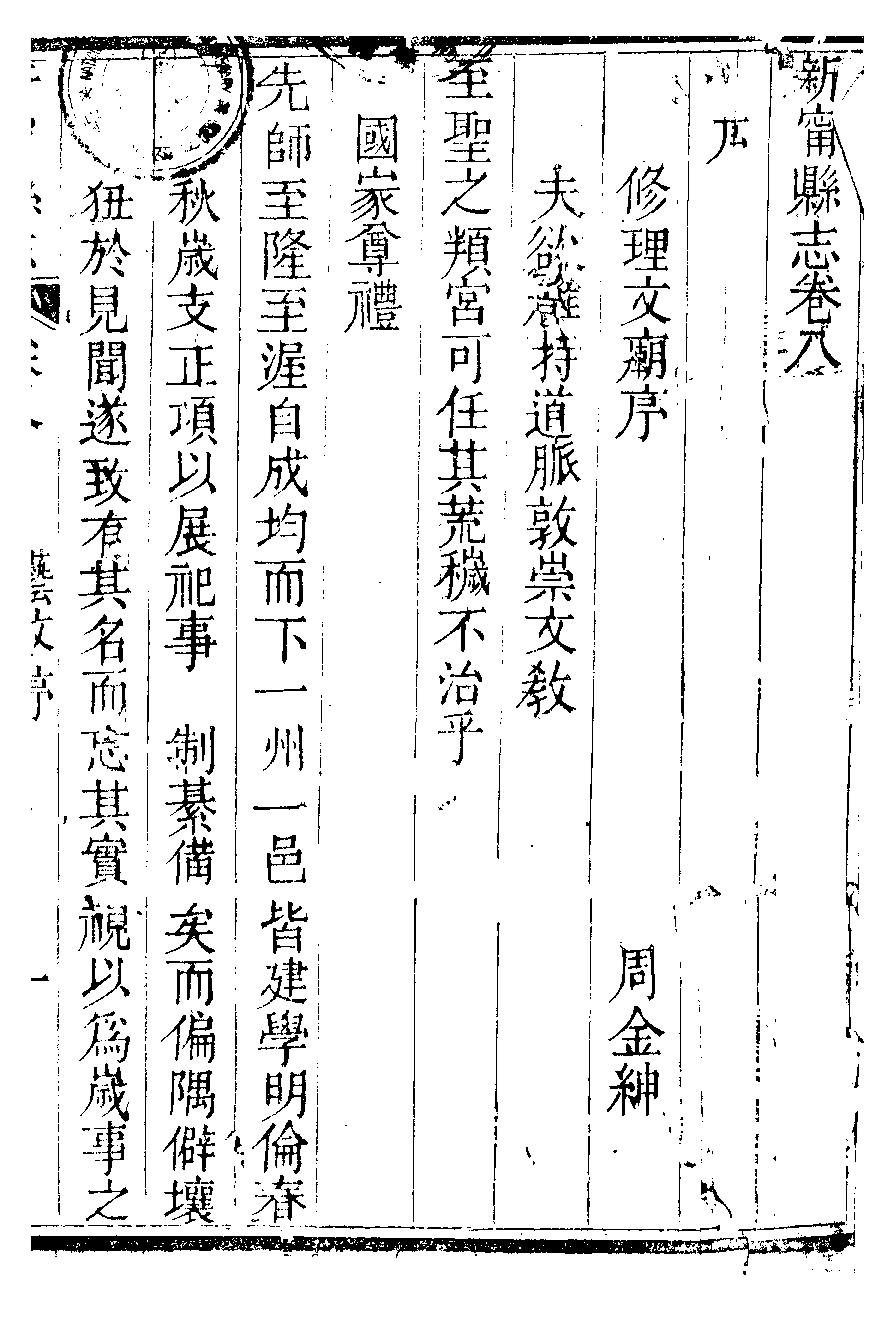 新甯縣志卷八
序
修理文廟序 周金紳
夫欲維持道脈敦崇文教
至聖之頖宮可任其荒穢不治乎
國家尊禮
先師至隆至渥自成均而下一州一邑皆建學明倫春
秋歲支正項以展祀事 制綦備矣而偏隅僻壤
狃於見聞遂致有其名而忘其實視以為歲事之
藝文序 一